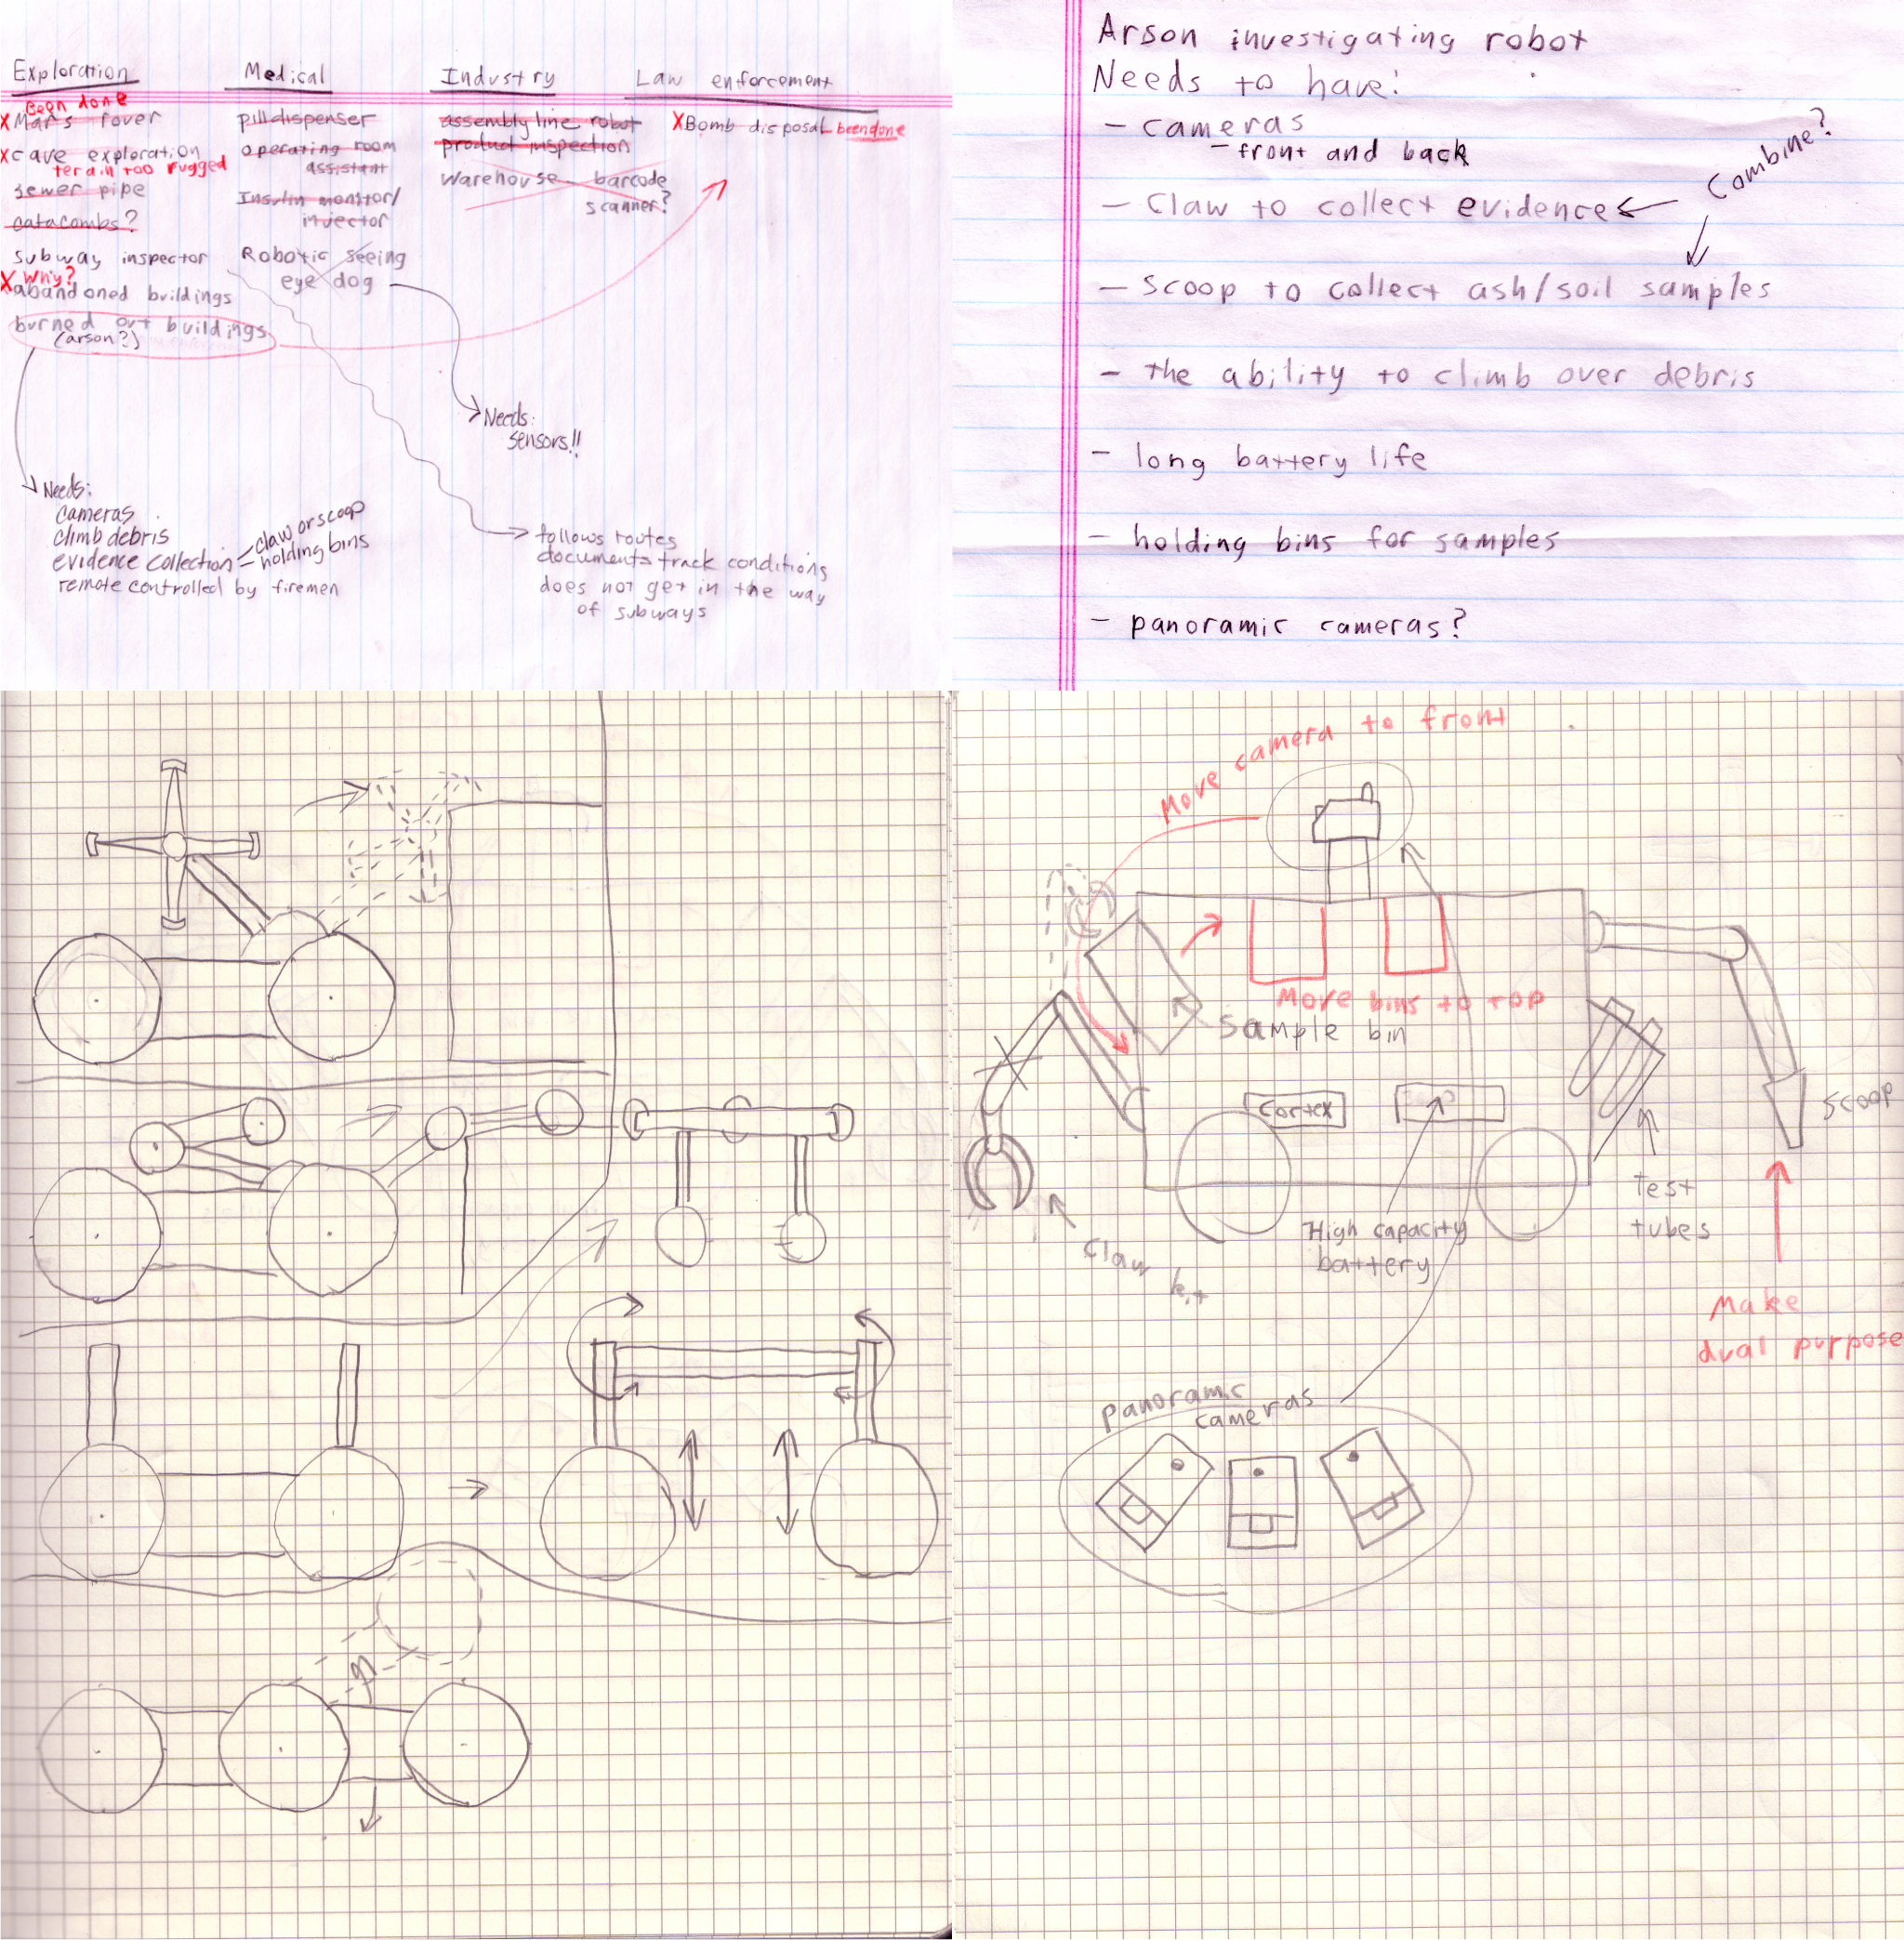 Exploration
Been done
X Mars rover
X cave exploration
terain too rugged
sewer pipe
catacombs?
subway inspector
X Why?
abandoned buildings
burned out buildings
(arson?)
Medical
pill dispenser
operating room
assistant
Insulin monitor/
injector
Robotic seeing
eye dog
Industry
assembly line robot
product inspection
Warehouse barcode
scanner?
Law enforcement
X Bomb disposal been done
Needs:
sensors!!
Needs:
cameras
climb debris
evidence collection
claw or scoop
holding bins
remote controlled by firemen
follows routes
documents track conditions
does not get in the way
of subways
Arson investigating robot
Needs to have:
- cameras
- front and back
- Claw to collect evidence
Combine?
- scoop to collect ash/soil samples
- the ability to climb over debris
- long battery life
- holding bins for samples
- panoramic cameras?
Move camera to front
Move bins to top
sample bin
Cortex
scoop
test
tubes
High capacity
battery
Claw kit
Make
dual purpose
panoramic
cameras